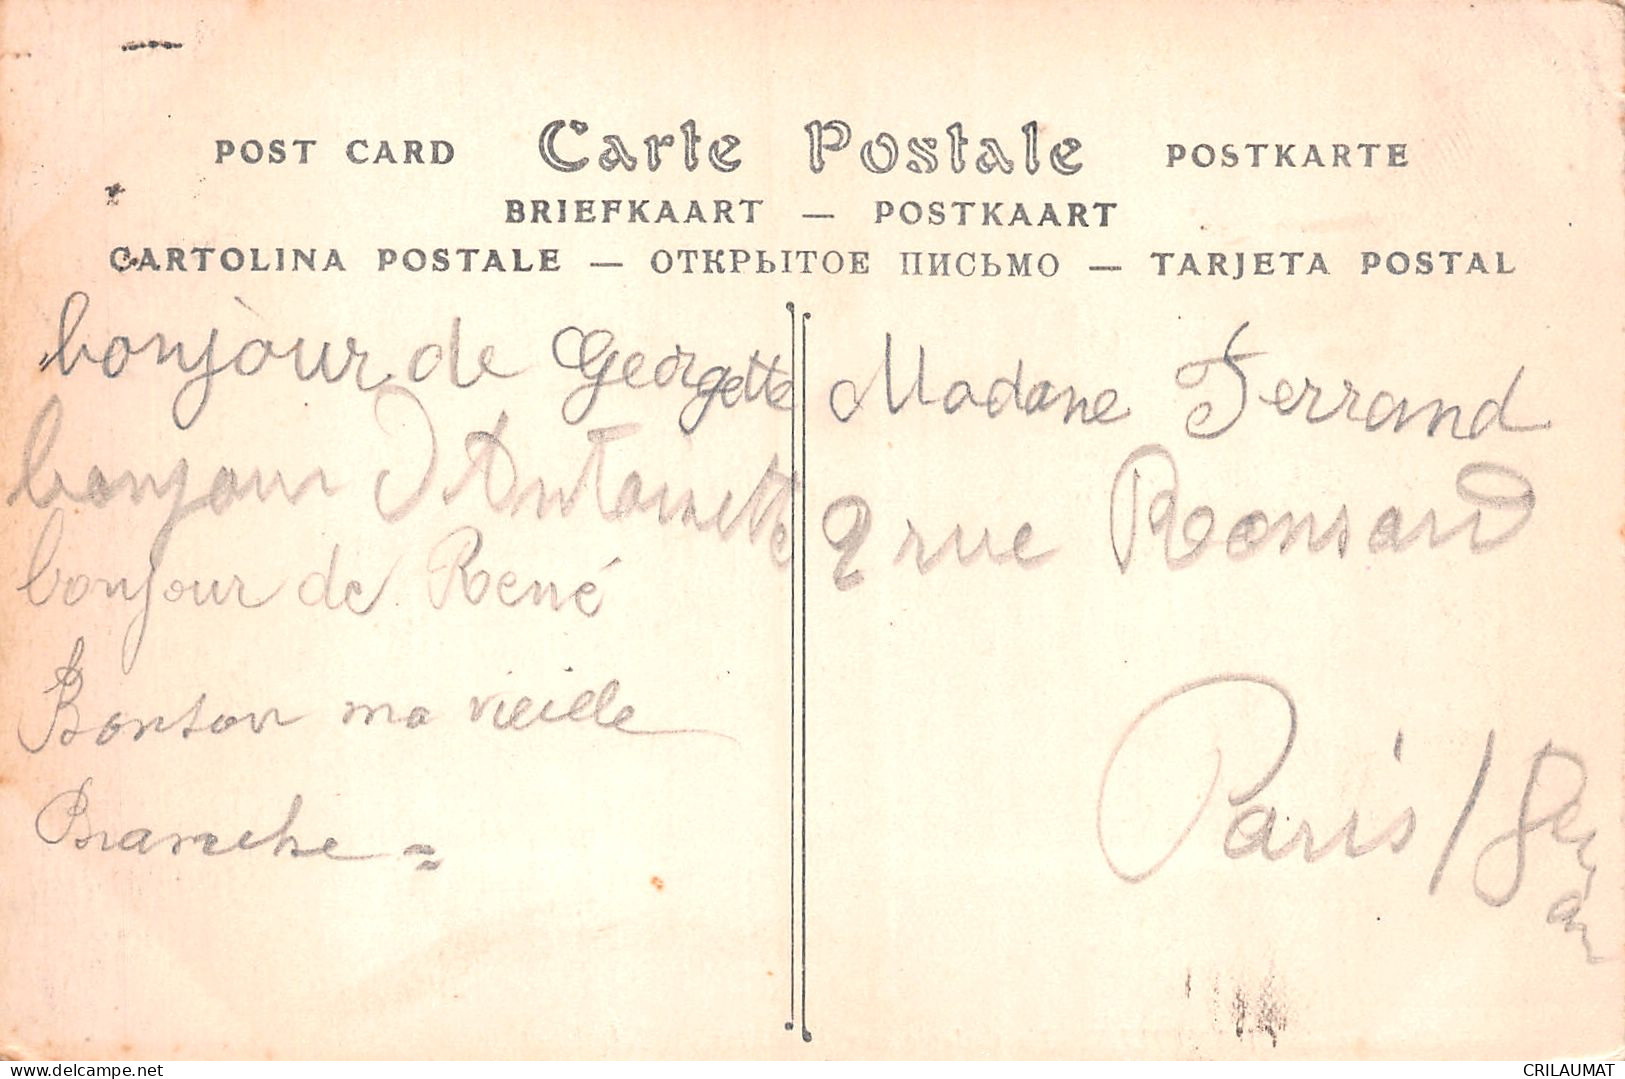 POST CARD Carte Postale POSTKARTE
BRIEFKAART — POSTKAART
CARTOLINA POSTALE — ОТКРЫТОЕ ПИСЬМО — TARJETA POSTAL
bonjour de Georgette
bonjour d'Antoinette
bonjour de René
Bonson ma vieille
Branche =
Madame Ferrand
2 rue Ronsard
Paris /
www.delcampe.net
CRILAUMAT